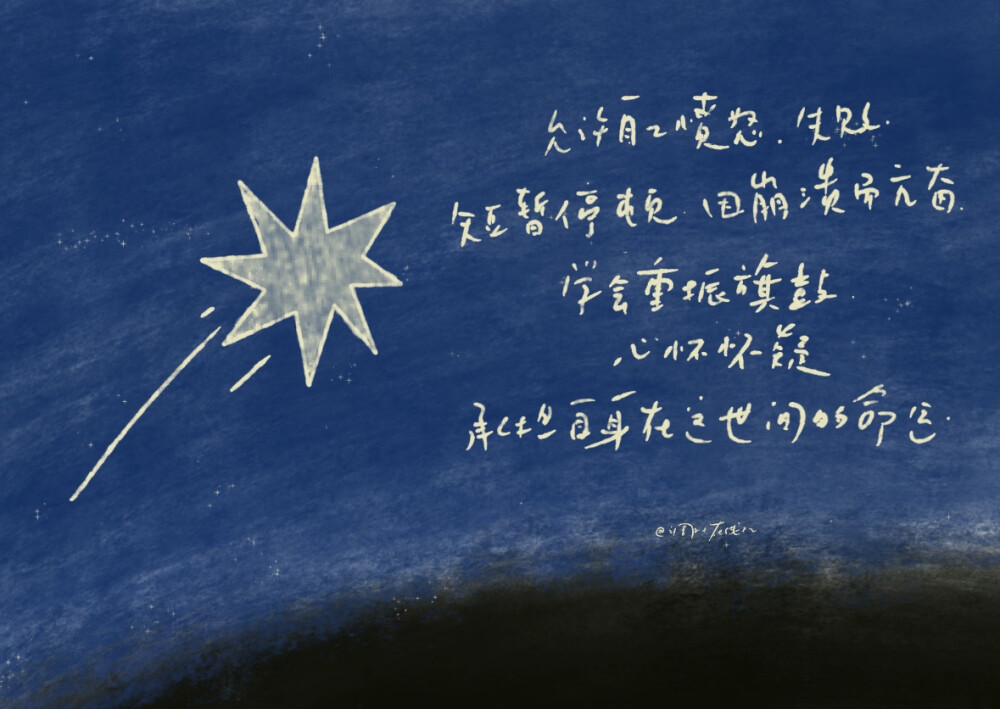 允许自己愤怒、失败.
短暂停顿.因崩溃而亢奋.
学会重振旗鼓.
心怀怀疑
承担自身在这世间的命运.